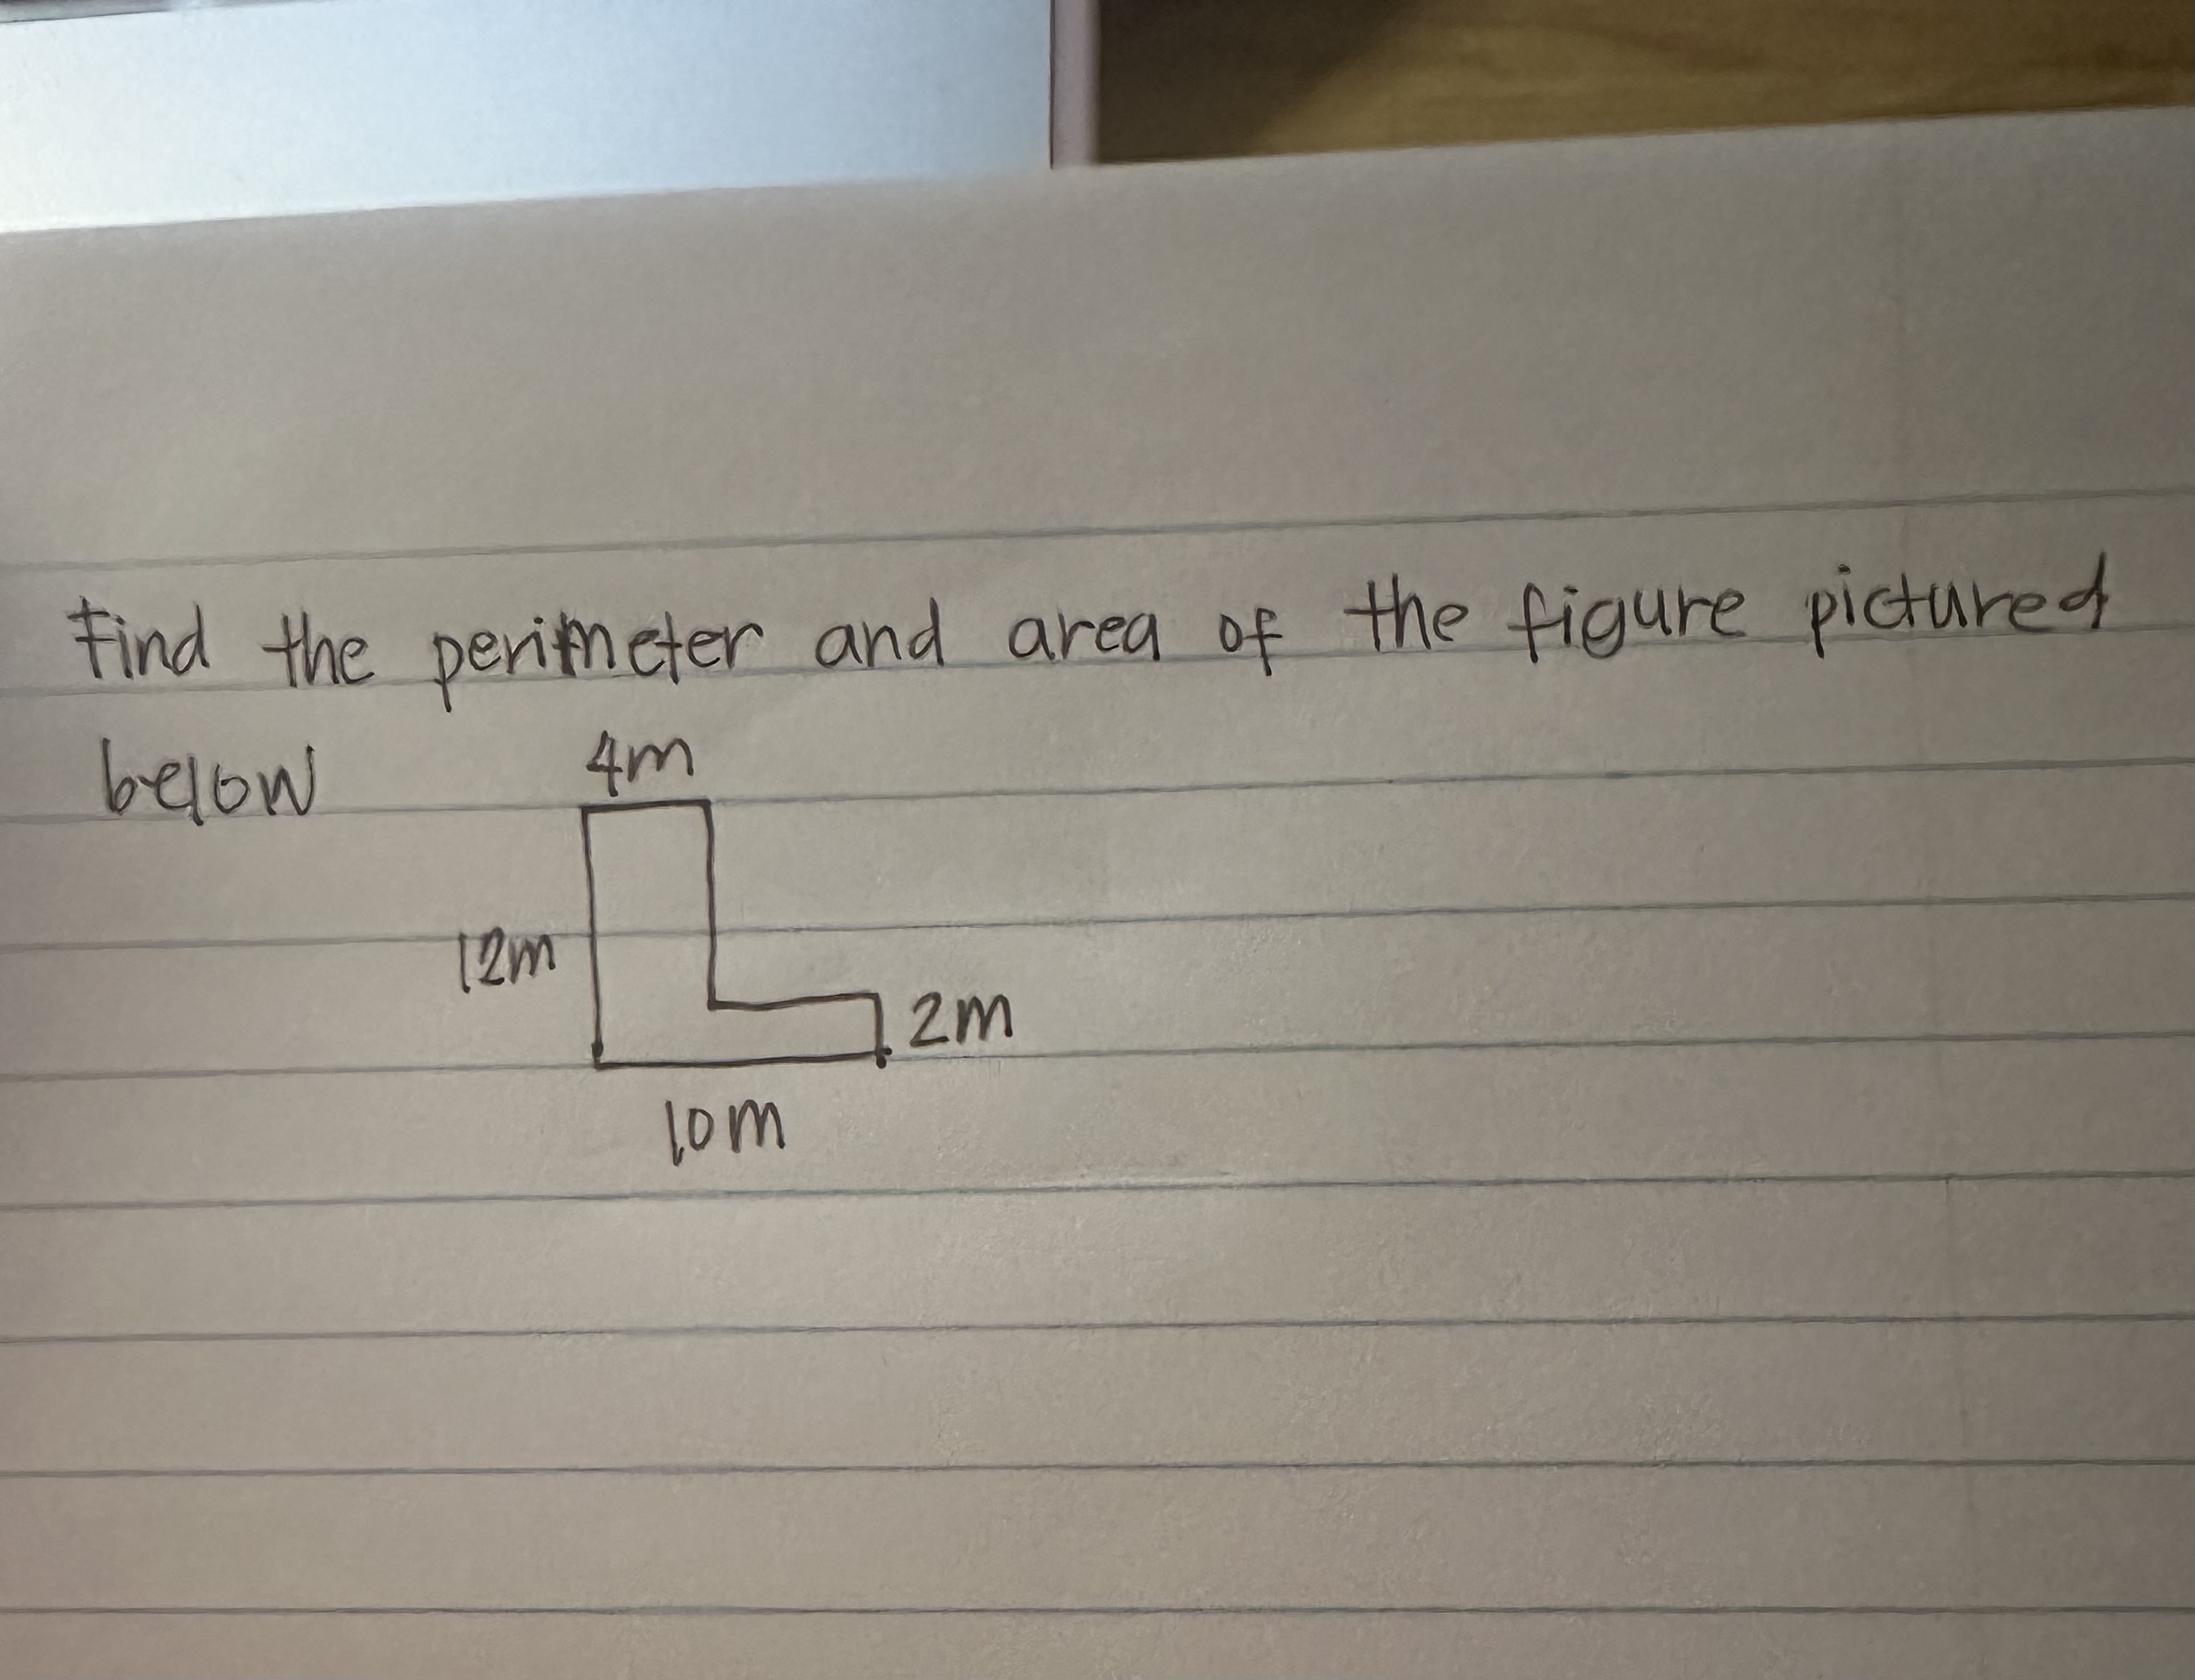 Find the perimeter and area of the figure pictured
below
4m
12m
2m
10m